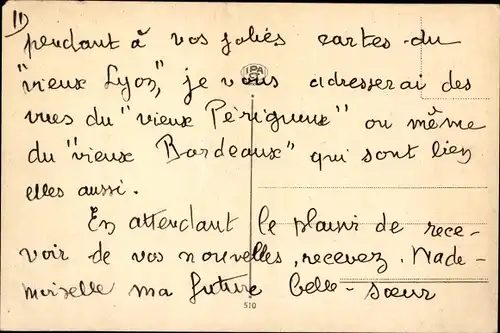 11
pendant à vos jolies cartes du
"vieux Lyon", je vous adresserai des
vues du "vieux Périgueux" ou même
du "vieux Bordeaux" qui sont bien
elles aussi.
En attendant le plaisir de rece-
voir de vos nouvelles, recevez, Made-
moiselle ma future belle-sœur
IPA
510